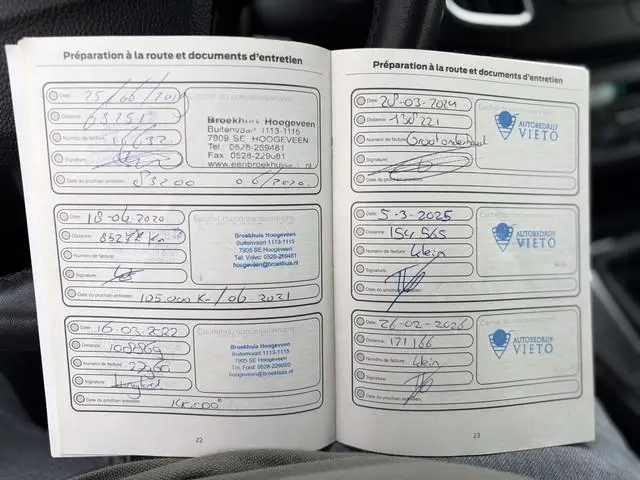 Préparation à la route et documents d'entretien
Date: 25/06/2019
Distance: 63251
Numéro de facture: 16632
Signature:
Date du prochain entretien: 83200 06/2020
Cachet du concessionnaire
Broekhuis Hoogeveen
Buitenvaart 1113-1115
7909 SE HOOGEVEEN
Tel.: 0528-269481
Fax. 0528-229081
www.eenbroekhuis.nl
Date: 18-06-2020
Distance: Km
Numéro de facture:
Signature:
Date du prochain entretien: 105.000 Km / 06-2021
Cachet du concessionnaire
Broekhuis Hoogeveen
Buitenvaart 1113-1115
7905 SE Hoogeveen
Tel. Volvo: 0528-269481
hoogeveen@broekhuis.nl
Date: 16-03-2022
Distance: 108869
Numéro de facture:
Signature:
Date du prochain entretien:
Cachet du concessionnaire
Broekhuis Hoogeveen
Buitenvaart 1113-1115
7905 SE Hoogeveen
Tel. Ford: 0528-229060
hoogeveen@broekhuis.nl
22
Préparation à la route et documents d'entretien
Date: 28-03-2024
Distance: 138221
Numéro de facture: Grootonderhoud
Signature:
Date du prochain entretien:
Cachet
AUTOBEDRIJF
VIETO
Date: 5-3-2025
Distance: 154565
Numéro de facture: klein
Signature:
Date du prochain entretien:
AUTOBEDRIJF
VIETO
Date: 26-02-2026
Distance: 171166
Numéro de facture: klein
Signature:
Date du prochain entretien:
AUTOBEDRIJF
VIETO
23